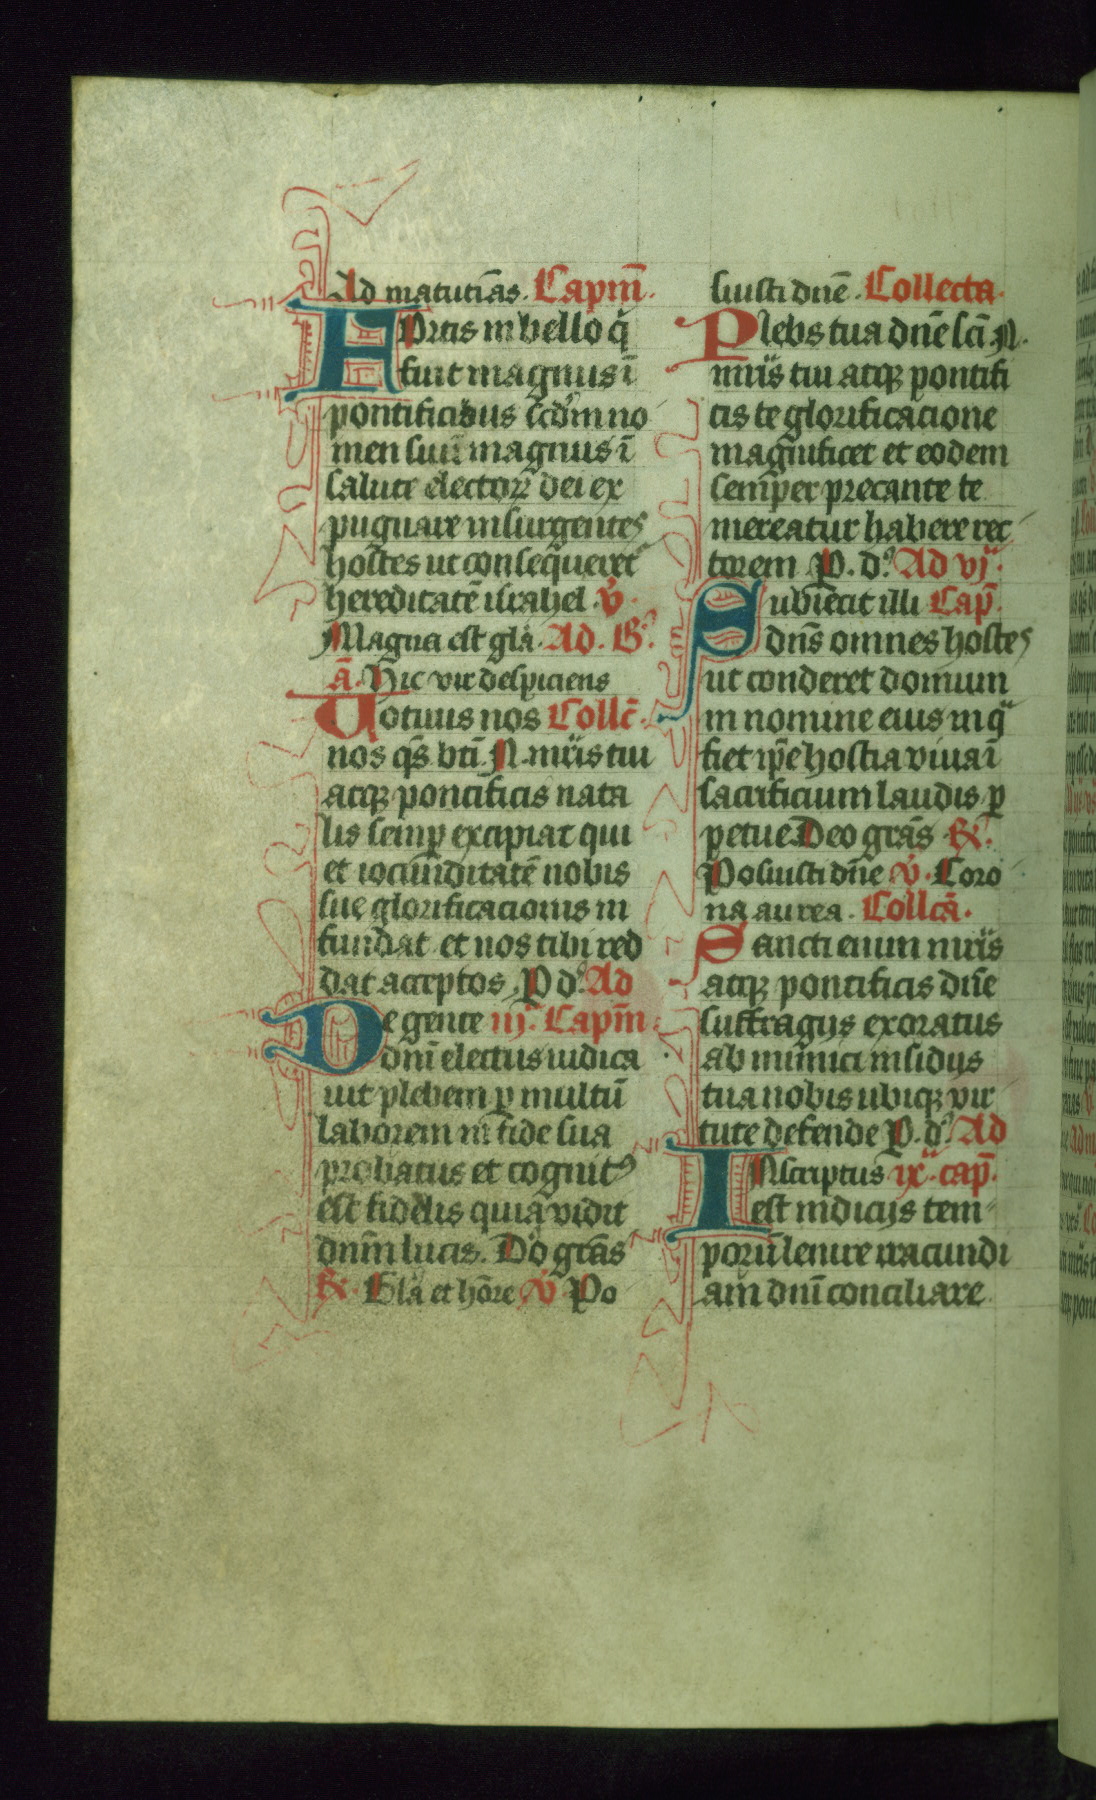 Ad matuti̅as. Capm̅.
FOrtis in bello q̇
fuit magnus i̅
pontificibus scd̅m no
men suu̅ magnus i̅
salute elector̅ dei ex
pugnare insurgentes
hostes ut conseqůeret᷑
hereditate̅ israhel. v̇.
Magna est gla̅. Ad. B᷑.
a̅. Hic vir despiciens
Uotiuus nos Collc̅.
nos qs̅ bti̅. N. mr̅is tui
atq3 pontificis nata
lis semp̲ excipiat qui
et iocu̅ditate̅ nobis
sue glorificacionis in
fundat et nos tibi red
dat acceptos. P d᷑. Ad
De gente iij᷑. Capm̅
dn̅i electus iudica
uit plebem p̲ multu̅
laborem in fide sua
probatus et cognitꝰ
est fidelis quia vidit
dn̅m lucis. Do̅ gra̅s
R̷. Gla̅ et ho̅re v̇ Po
suisti dn̅e. Collecta.
Plebs tua dn̅e sc̅i N.
mr̅is tui atq3 pontifi
cis te glorificacione
magnificet et eodem
semper precante te
mereatur habere rec
torem P. d᷑. Ad vj᷑.
Subiecit illi Cap̅.
dn̅s omnes hostes
ut conderet domum
in nomine eius in qͣ
fiet ip̅e hostia viua i̅
sacrificium laudis p̲
petue Deo gra̅s R̷.
Posuisti dn̅e v̇. Coro
na aurea. Collca̅.
Sancti enim mr̅is
atq3 pontificis dn̅e
suffragijs exoratus
ab inimici insidijs
tua nobis ubiq3 vir
tute defende P. d᷑. Ad
INscriptus ix᷑. cap̅.
est indicijs tem
poru̅ lenire iracundi
am dn̅i conciliare